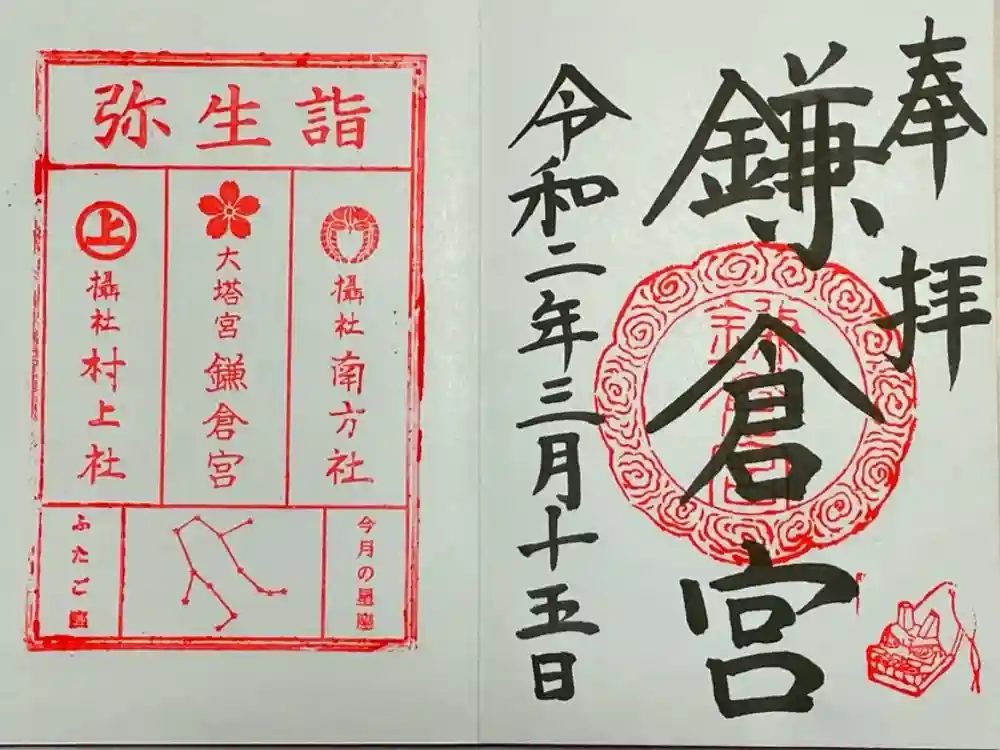 奉拝
鎌倉宮
令和二年三月十五日
鎌倉宮
弥生詣
攝社 南方社
大塔宮 鎌倉宮
上
攝社 村上社
今月の星座
ふたご座